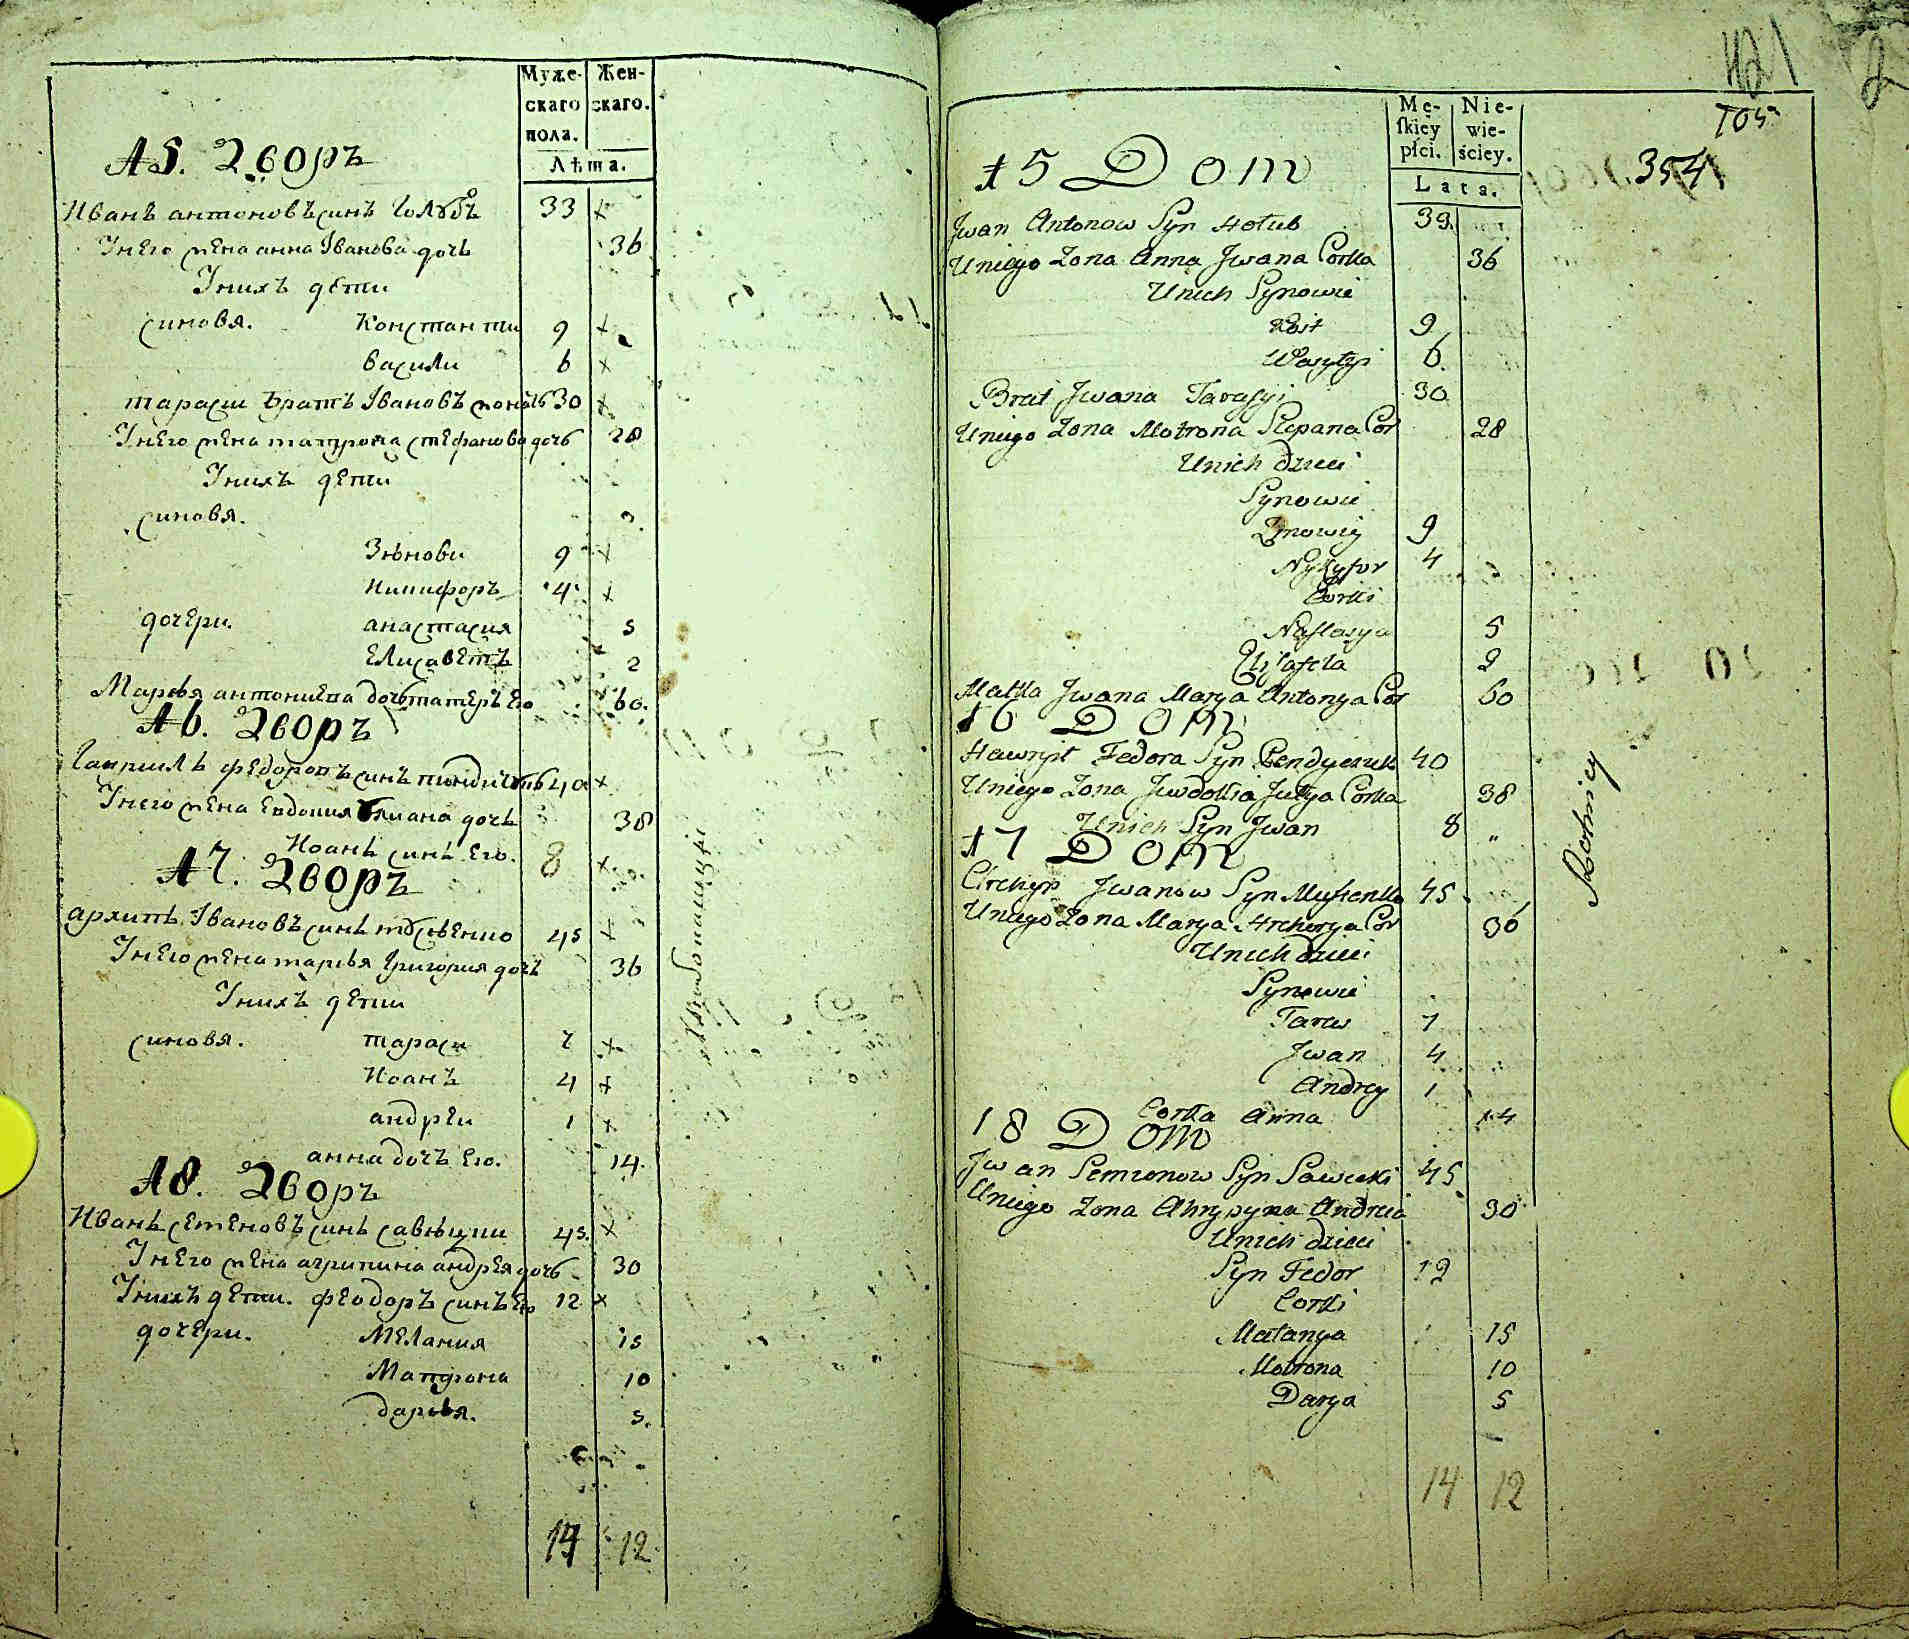 Муже-
скаго
пола.
Жен-
скаго.
Лѣта.
15. Дворъ
Иванъ антоновъ синъ Голубъ 33
Унего жена анна Iванова дочь 36
Унихъ дети
синовя. Константи 9
васили 6
тараси братъ Iвановъ 30
Унего жена матрона стефанова дочь 28
Унихъ дети
синовя.
Зѣнови 9
Никифоръ 4
дочери. анастасия 5
Елисаветъ 2
Марья антониева дочь матеръ Его 60.
16. Дворъ
Гаврилъ федоровъ синъ 40
Унего жена Евдокия дочь 38
Иоанъ синъ Его. 8
17. Дворъ
архипъ Iвановъ синъ 45
Унего жена марья Григория дочь 36
Унихъ дети
синовя. тараси 7
Иоанъ 4
андреи 1
анна дочъ Его. 14.
18. Дворъ
Иванъ семеновъ синъ савѣцки 45.
Унего жена агрипина андрея дочь 30
Унихъ дети. феодоръ синъ Его 12
дочери. Мелания 15
Матрона 10
дарья. 5.
14 12
421
2
354
Mę-
skiey
płci.
Nie-
wie-
ściey.
Lata.
15 Dom
Jwan Antonow Syn Hołub 33
Uniego Zona Anna Jwana Corka 36
Unich Synowie
Kost 9
Wasylyi 6.
Brat Jwana Tarasyi 30
Uniego Zona Motrona Stepana Cor 28
Unich dzieci
Synowie
Zinowiy 9
Nykyfor 4
Corki
Nastasya 5
Elisafeta 2
Matka Jwana Marya Antonya Cor 60
16 Dom
Hawryło Fedora Syn 40
Uniego Zona Juwdokia Julya Corka 38
Unich Syn Jwan 8 "
17 Dom
Archyp Jwanow Syn 45
Uniego Zona Marya Cor 36
Unich dzieci
Synowie
Taras 7
Jwan 4
Andrey 1
Corka Anna 14
18 Dom
Jwan Semionow Syn Sawicki 45
Uniego Zona Ahrypyna Andreia 30
Unich dzieci
Syn Fedor 12
Corki
Małanya 15
Motrona 10
Darya 5
14 12
Robotnicy